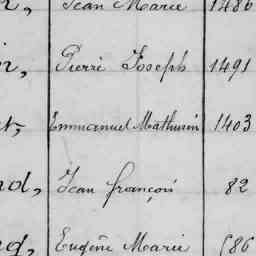 Jean Marie 1486
Pierre Joseph 1491
Emmanuel Mathurin 1403
Jean françois 82
Eugène Marie 586